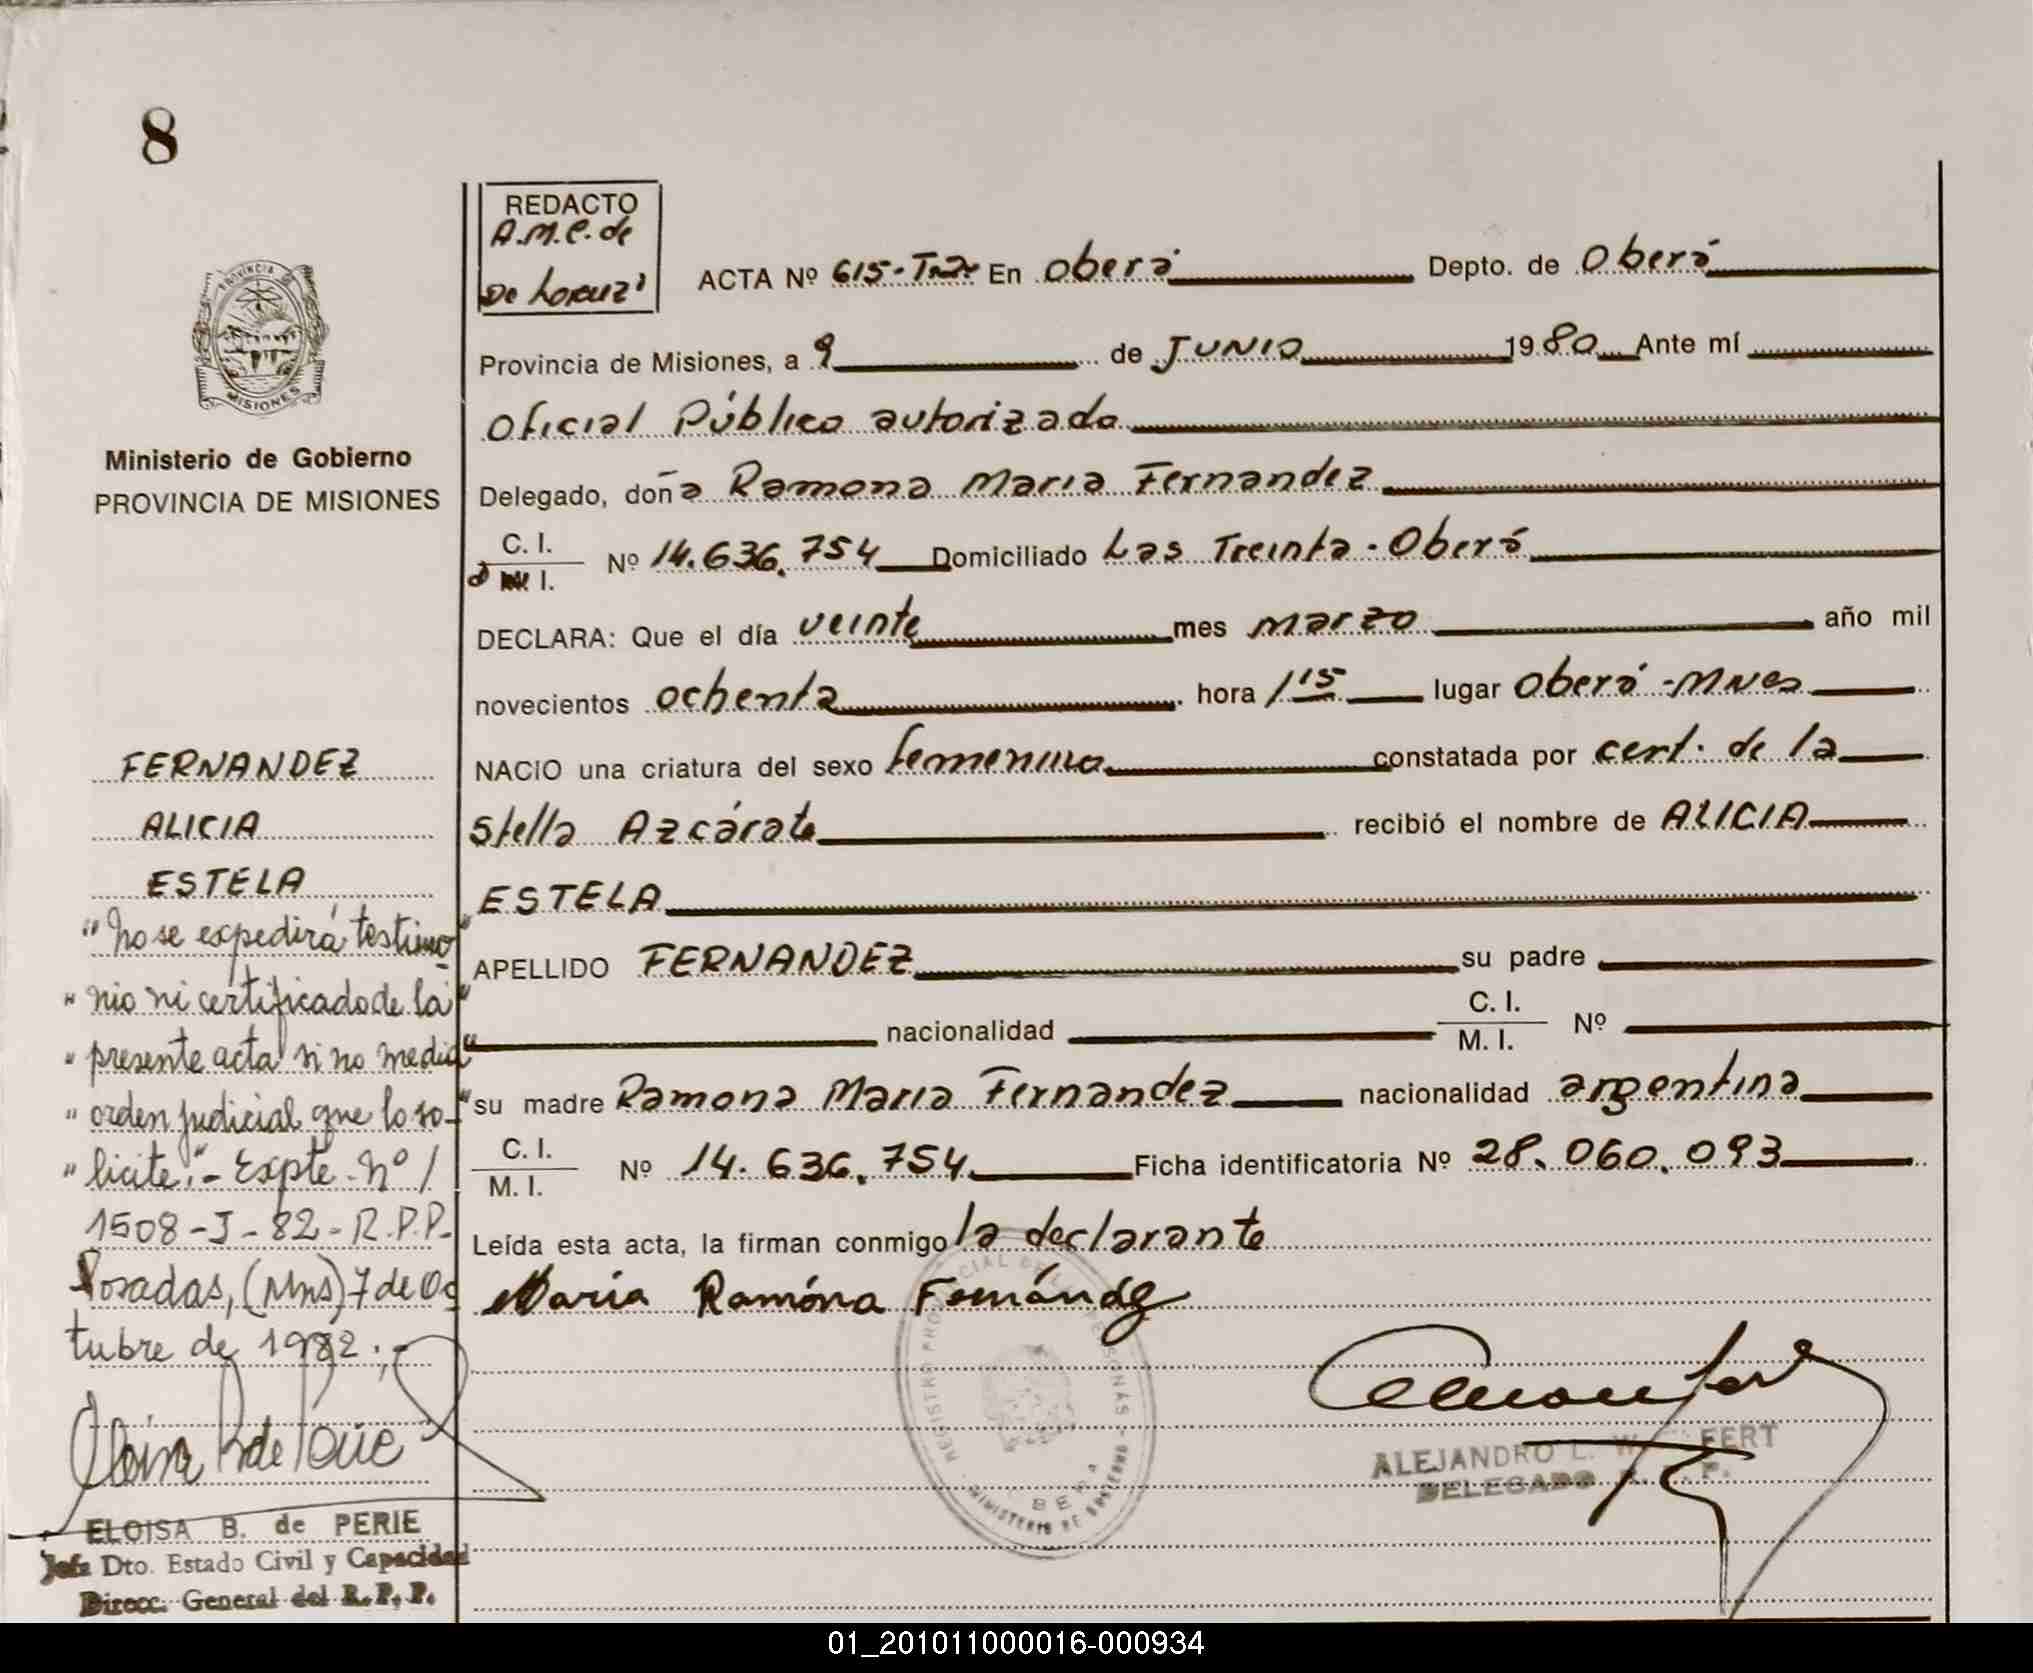 8
REDACTO
A.M.C. de
De Lorenzi
ACTA Nº 615- En Oberá Depto. de Oberá
PROVINCIA
MISIONES
Provincia de Misiones, a 9 de JUNIO 1980 Ante mí
Oficial Público autorizado
Ministerio de Gobierno
PROVINCIA DE MISIONES
Delegado, doña Ramona Maria Fernandez
C. I.
I. Nº 14.636.754 Domiciliado Las Treinta - Oberá
DECLARA: Que el día veinte mes marzo año mil
novecientos ochenta hora 1 15 lugar Oberá - Mnes
NACIO una criatura del sexo femenino constatada por cert. de la
Stella Azcárate recibió el nombre de ALICIA
ESTELA
APELLIDO FERNANDEZ su padre
nacionalidad C. I.
M. I. Nº
su madre Ramona Maria Fernandez nacionalidad argentina
C. I.
M. I. Nº 14.636.754 Ficha identificatoria Nº 28.060.093
Leída esta acta, la firman conmigo la declarante
María Ramóna Fernández
FERNANDEZ
ALICIA
ESTELA
"No se expedirá testimo"
"nio ni certificado de la"
"presente acta si no media"
"orden judicial que lo so-"
"licite."- Expte. Nº /
1508-J-82-R.P.P.-
Posadas, (Mns) 7 de Oc
tubre de 1982.-
ELOISA B. de PERIE
Jefa Dto. Estado Civil y Capacidad
Direcc. General del R. P. P.
REGISTRO PROVINCIAL DE LAS PERSONAS
MINISTERIO DE GOBIERNO
OBERA
ALEJANDRO L.
DELEGADO R. P. P.
01_201011000016-000934